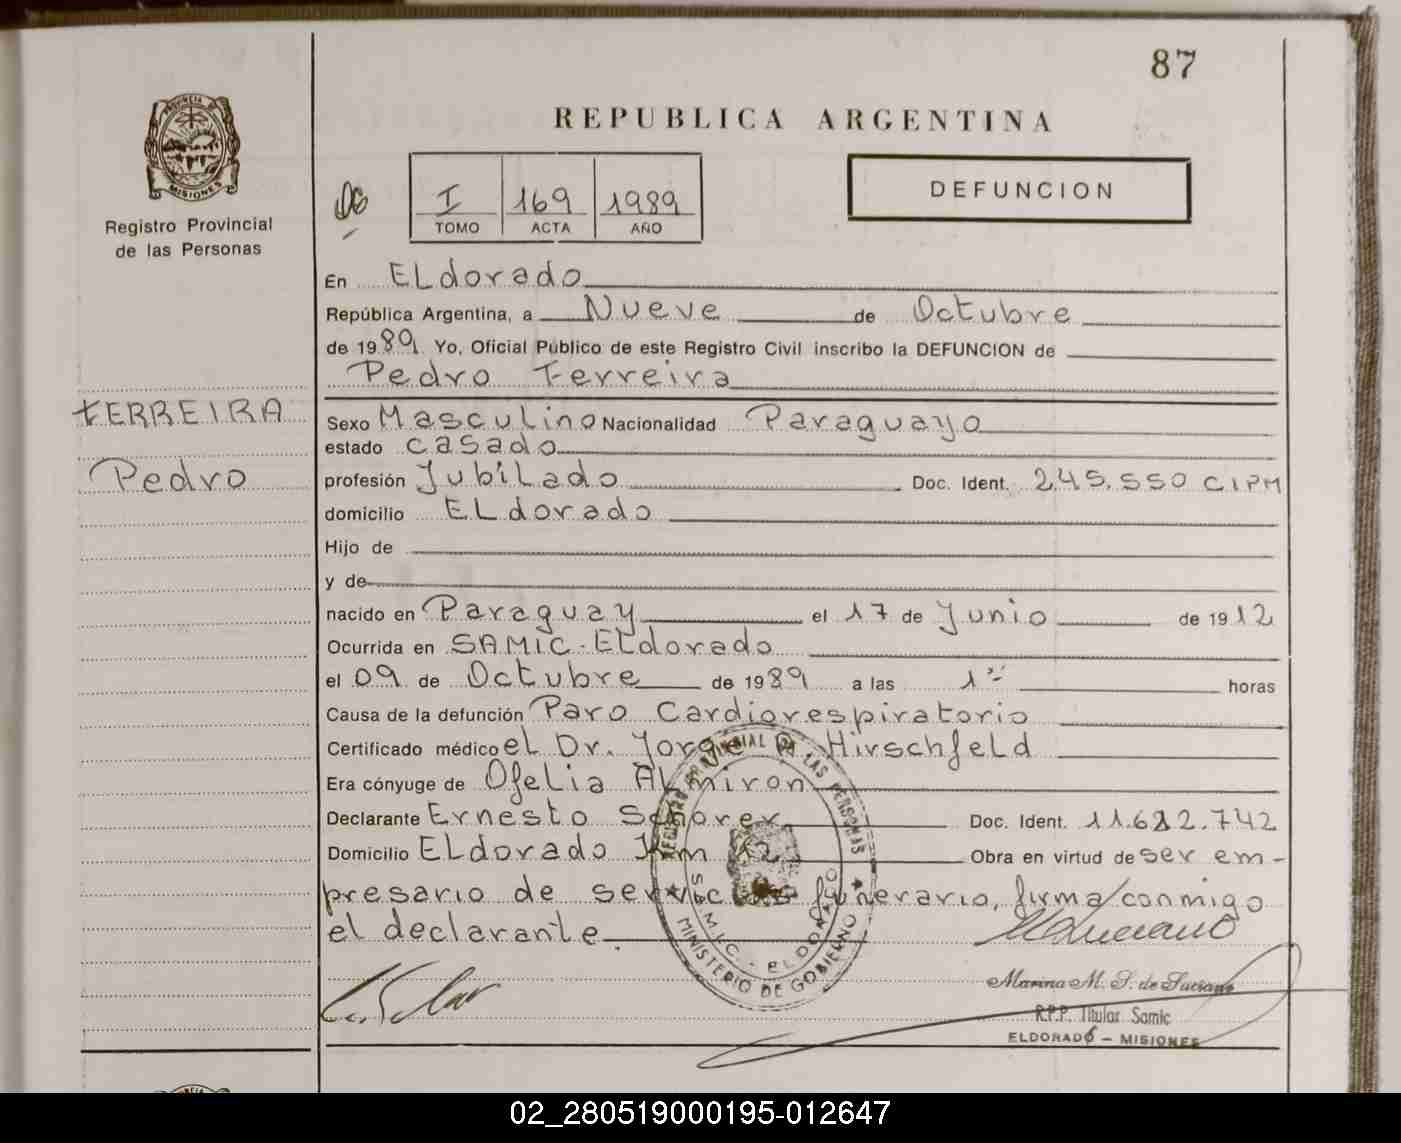 87
PROVINCIA DE
MISIONES
Registro Provincial
de las Personas
REPUBLICA ARGENTINA
I 169 1989
TOMO ACTA AÑO
DEFUNCION
En ELdorado
República Argentina, a Nueve de Octubre
de 1989 Yo, Oficial Público de este Registro Civil inscribo la DEFUNCION de
Pedro Ferreira
FERREIRA
Pedro
Sexo Masculino Nacionalidad Paraguayo
estado casado
profesión Jubilado Doc. Ident. 245.550 CIPM
domicilio ELdorado
Hijo de
y de
nacido en Paraguay el 17 de Junio de 1912
Ocurrida en SAMIC-ELdorado
el 09 de Octubre de 1989 a las 1 horas
Causa de la defunción Paro Cardiorespiratorio
Certificado médico el Dr. Jorge Hirschfeld
Era cónyuge de Ofelia Almiron
Declarante Ernesto Doc. Ident. 11.682.742
Domicilio ELdorado Km 12 Obra en virtud de ser em-
presario de servicios funerario, firma conmigo
el declarante.
REGISTRO PROVINCIAL DE LAS PERSONAS
SAMIC - ELDORADO
MINISTERIO DE GOBIERNO
Marina M. S. de Luciano
R.P.P. Titular Samic
ELDORADO - MISIONES
02_280519000195-012647